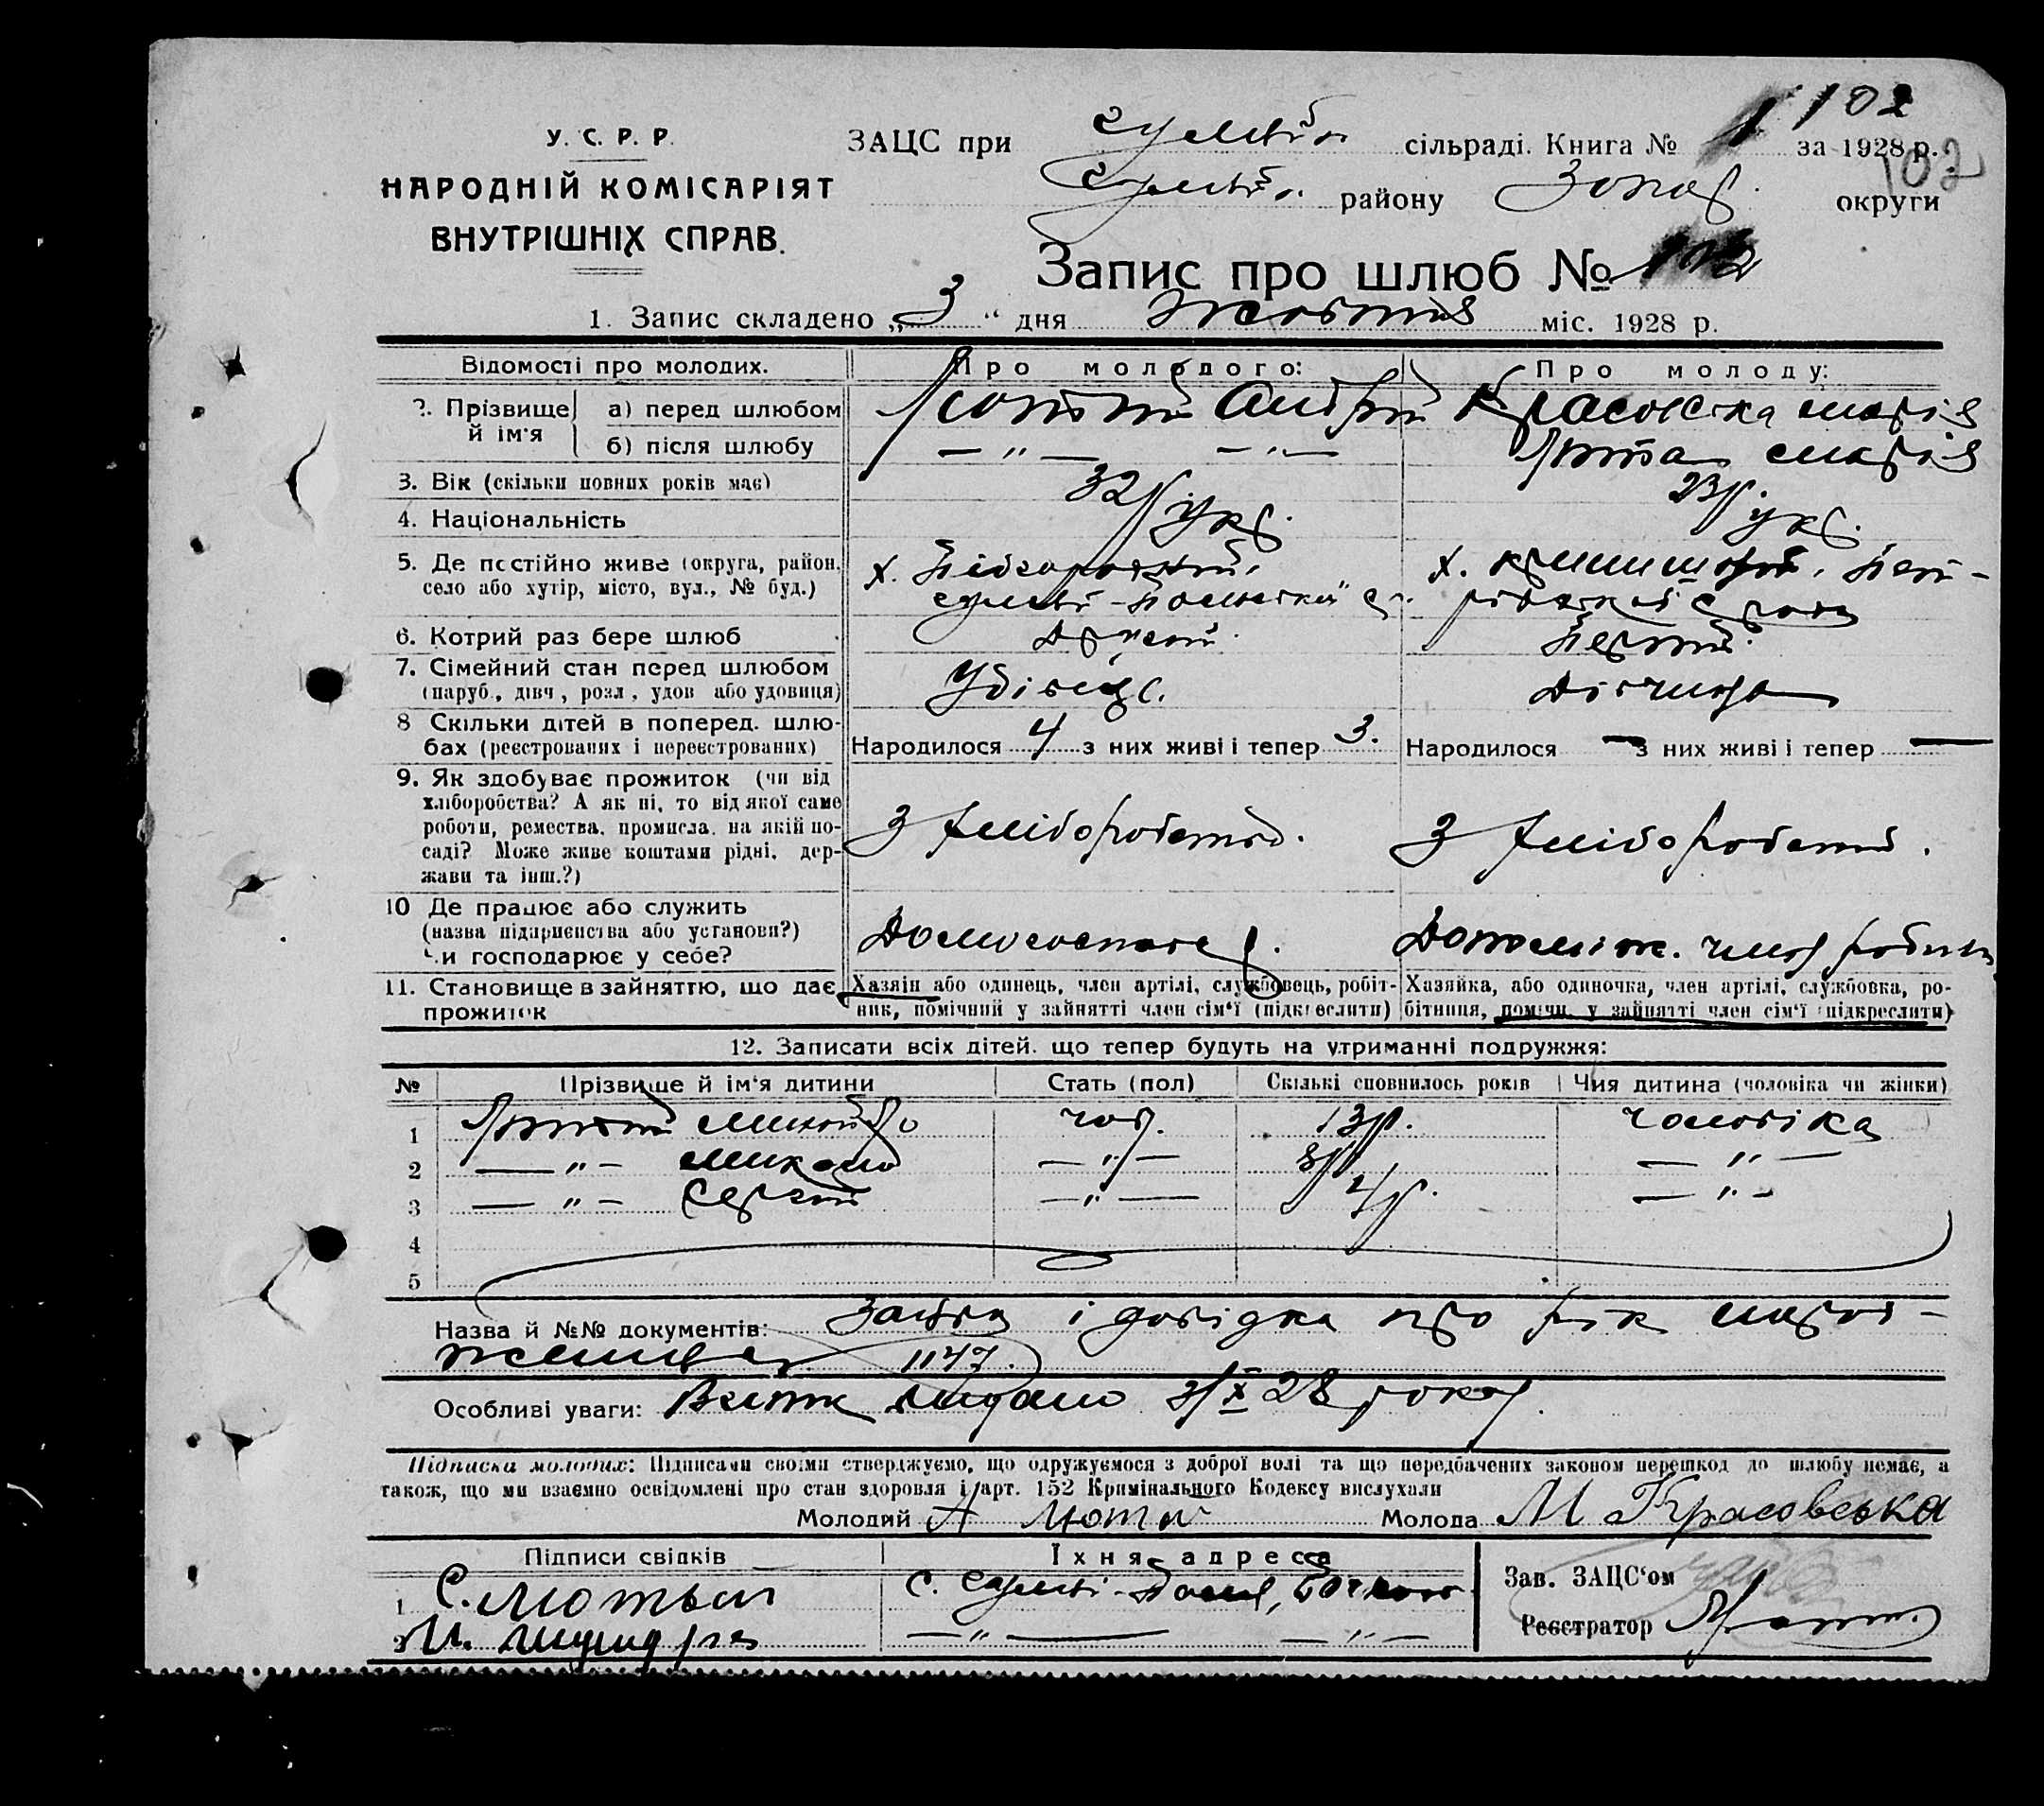 102
У. С. Р. Р.
ЗАЦС при сільраді. Книга № 1 за 1928 р.
102
НАРОДНІЙ КОМІСАРІЯТ
району округи
ВНУТРІШНІХ СПРАВ.
Запис про шлюб № 102
1. Запис складено „ 3 “ дня жовтня міс. 1928 р.
Відомості про молодих. Про молодого: Про молоду:
2. Прізвище й ім'я а) перед шлюбом Лютий Андрій Красовська Марія
б) після шлюбу — " — — " — Люта Марія
3. Вік (скільки повних років має) 32 р. 23 р.
4. Національність укр. укр.
5. Де постійно живе (округа, район, х. х.
село або хутір, місто, вул., № буд.)
6. Котрий раз бере шлюб Другий Перший
7. Сімейний стан перед шлюбом
(паруб., дівч., розл., удов. або удовиця) Удівець. Дівчина
8 Скільки дітей в поперед. шлю-
бах (реєстрованих і нереєстрованих) Народилося 4 з них живі і тепер 3. Народилося — з них живі і тепер —
9. Як здобуває прожиток (чи від
хліборобства? А як ні, то від якої саме
роботи, ремества, промисла, на якій по- З хліборобства. З хліборобства.
саді? Може живе коштами рідні, дер-
жави та інш.?)
10 Де працює або служить
(назва підприємства або установи?) Допоміж. член родини
Чи господарює у себе?
11. Становище в зайняттю, що дає Хазяін або одинець, член артілі, службовець, робіт- Хазяйка, або одиночка, член артілі, службовка, ро-
прожиток ник, помічний у зайнятті член сім'ї (підкреслити) бітниця, помічн. у зайнятті член сім'ї (підкреслити)
12. Записати всіх дітей, що тепер будуть на утриманні подружжя:
№ Прізвище й ім'я дитини Стать (пол) Скількі сповнилось років Чия дитина (чоловіка чи жінки)
1 Лютий чол. 13 р. чоловіка
2 — " — Микола — " — 8 р. — " —
3 — " — Сергій — " — 4 р. — " —
4
5
Назва й №№ документів: Заява і довідка про рік народ-
ження 1147.
Особливі уваги: Витяг видано 3/X 28 року.
Підписка молодих: Підписами своїми стверджуємо, що одружуємося з доброї волі та що передбачених законом перешкод до шлюбу немає, а
також, що ми взаємно освідомлені про стан здоровля і арт. 152 Кримінального Кодексу вислухали
Молодий А Лютий Молода М Красовська
Підписи свідків Їхня адреса
Зав. ЗАЦС'ом
1 С. Лютый с.
Реєстратор
2 — " — — " —